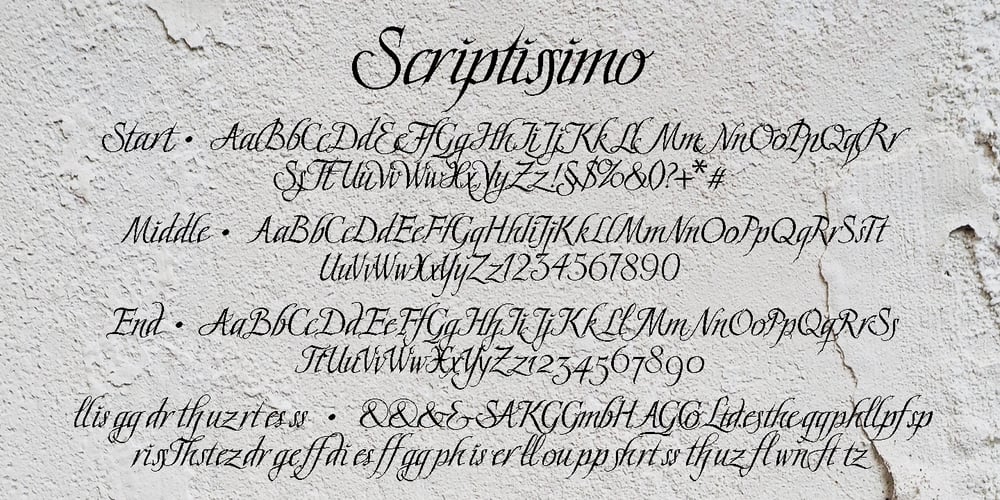 Scriptissimo
Start • AaBbCcDdEeFfGgHhIiJjKkLlMmNnOoPpQqRr
SsTtUuVvWwXxYyZz!§$%&()?+*#
Middle • AaBbCcDdEeFfGgHhIiJjKkLlMmNnOoPpQqRrSsTt
UuVvWwXxYyZz1234567890
End • AaBbCcDdEeFfGgHhIiJjKkLlMmNnOoPpQqRrSs
TtUuVvWwXxYyZz1234567890
llis gg dr th uz rt es ss • &&&&SAKGGmbH AGCo Ltd.esthe
ris Th st ez dr ge ff di es ff gg ph is er ll ou pp sh rt ss th uz fl wn ft tz